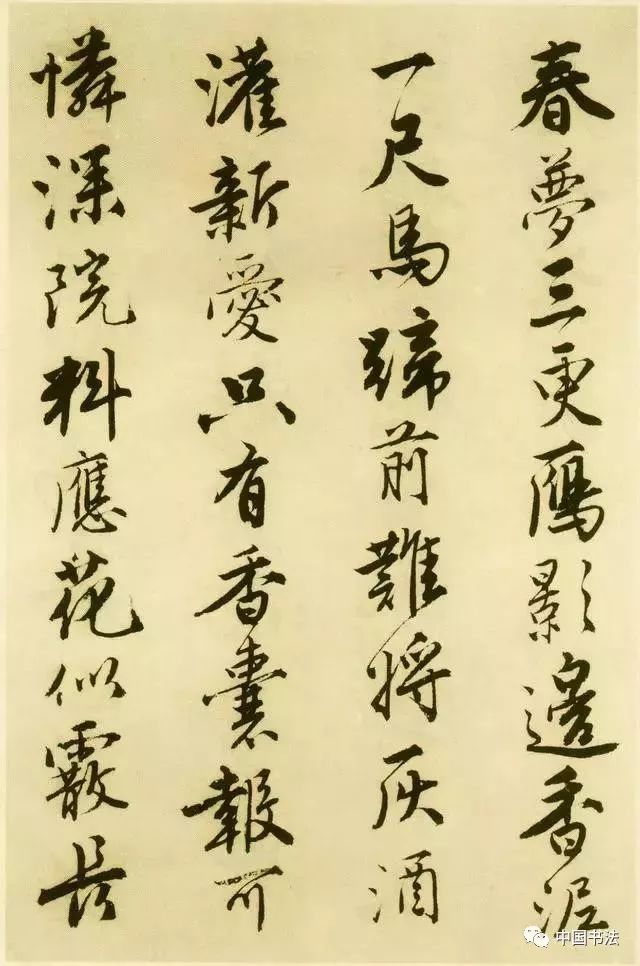 春夢三更鴈影邊香泥
一尺馬蹄前難將灰酒
灌新愛只有香囊報可
憐深院料應花似霰長
中国书法